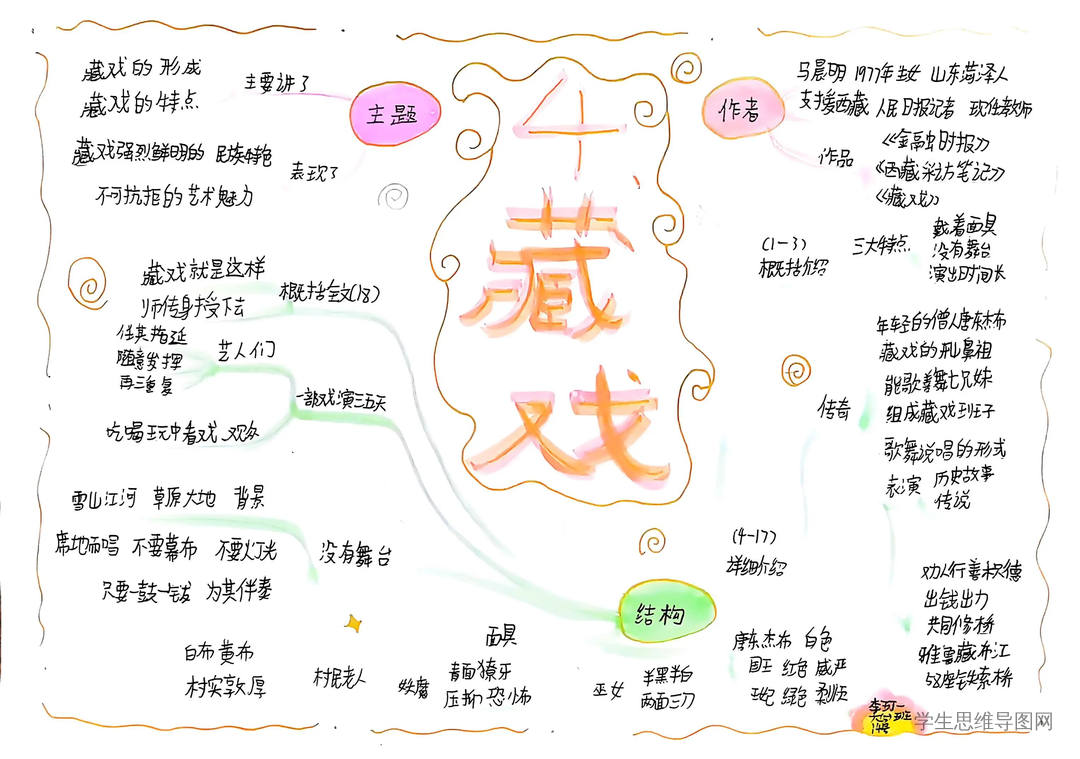 4
藏
戏
主题
主要讲了
藏戏的形成
藏戏的特点
表现了
藏戏强烈鲜明的 民族特色
不可抗拒的艺术魅力
作者
马晨明 1977年生女 山东菏泽人
支援西藏 人民日报记者 现任教师
作品
《金融时报》
《西藏采访笔记》
《藏戏》
结构
(1-3)
概括介绍
三大特点
戴着面具
没有舞台
演出时间长
(4-17)
详细介绍
传奇
年轻的僧人唐东杰布
藏戏的开山鼻祖
能歌善舞七兄妹
组成藏戏班子
歌舞说唱的形式
表演 历史故事
传说
劝人行善积德
出钱出力
共同修桥
雅鲁藏布江
58座铁索桥
面具
唐东杰布 白色
国王 红色 威严
王妃 绿色 柔顺
巫女
半黑半白
两面三刀
妖魔
青面獠牙
压抑恐怖
村民老人
白布黄布
村实敦厚
没有舞台
雪山江河 草原大地 背景
席地而唱 不要幕布 不要灯光
只要一鼓一钹 为其伴奏
一部戏演三五天
艺人们
任其拖延
随意发挥
再三重复
吃喝玩中看戏 观众
概括全文(18)
藏戏就是这样
师传身授下去
李可一
学生思维导图网